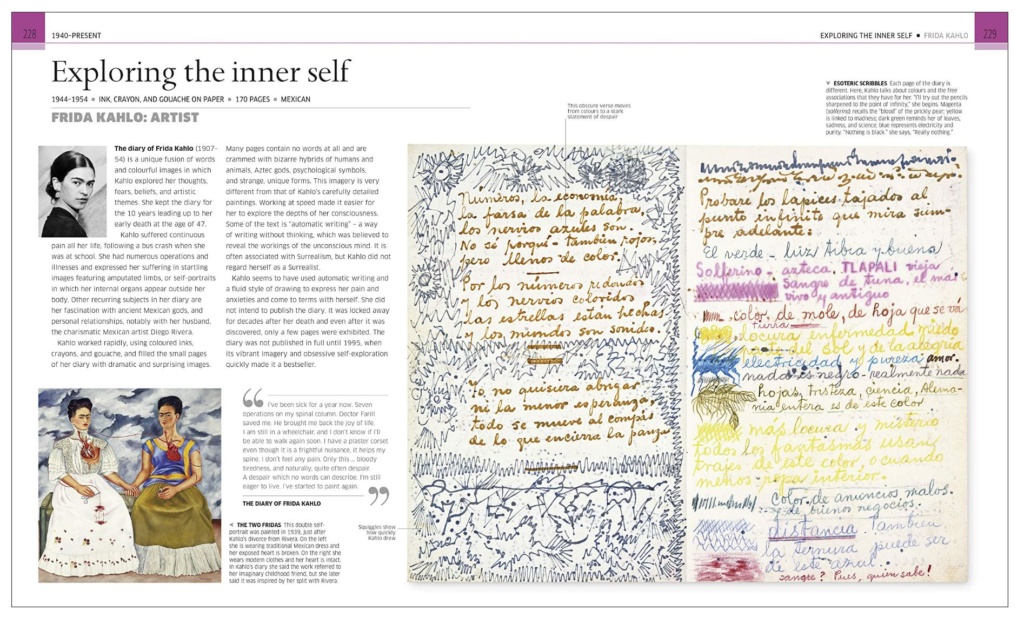 228
1940–PRESENT
EXPLORING THE INNER SELF ■ FRIDA KAHLO
229
Exploring the inner self
1944–1954 ■ INK, CRAYON, AND GOUACHE ON PAPER ■ 170 PAGES ■ MEXICAN
FRIDA KAHLO: ARTIST
The diary of Frida Kahlo (1907–
54) is a unique fusion of words
and colourful images in which
Kahlo explored her thoughts,
fears, beliefs, and artistic
themes. She kept the diary for
the 10 years leading up to her
early death at the age of 47.
Kahlo suffered continuous
pain all her life, following a bus crash when she
was at school. She had numerous operations and
illnesses and expressed her suffering in startling
images featuring amputated limbs, or self-portraits
in which her internal organs appear outside her
body. Other recurring subjects in her diary are
her fascination with ancient Mexican gods, and
personal relationships, notably with her husband,
the charismatic Mexican artist Diego Rivera.
Kahlo worked rapidly, using coloured inks,
crayons, and gouache, and filled the small pages
of her diary with dramatic and surprising images.
Many pages contain no words at all and are
crammed with bizarre hybrids of humans and
animals, Aztec gods, psychological symbols,
and strange, unique forms. This imagery is very
different from that of Kahlo's carefully detailed
paintings. Working at speed made it easier for
her to explore the depths of her consciousness.
Some of the text is "automatic writing" – a way
of writing without thinking, which was believed to
reveal the workings of the unconscious mind. It is
often associated with Surrealism, but Kahlo did not
regard herself as a Surrealist.
Kahlo seems to have used automatic writing and
a fluid style of drawing to express her pain and
anxieties and come to terms with herself. She did
not intend to publish the diary. It was locked away
for decades after her death and even after it was
discovered, only a few pages were exhibited. The
diary was not published in full until 1995, when
its vibrant imagery and obsessive self-exploration
quickly made it a bestseller.
“ I've been sick for a year now. Seven
operations on my spinal column. Doctor Farill
saved me. He brought me back the joy of life.
I am still in a wheelchair, and I don't know if I'll
be able to walk again soon. I have a plaster corset
even though it is a frightful nuisance, it helps my
spine. I don't feel any pain. Only this ... bloody
tiredness, and naturally, quite often despair.
A despair which no words can describe. I'm still
eager to live. I've started to paint again. ”
THE DIARY OF FRIDA KAHLO
◄ THE TWO FRIDAS This double self-
portrait was painted in 1939, just after
Kahlo's divorce from Rivera. On the left
she is wearing traditional Mexican dress and
her exposed heart is broken. On the right she
wears modern clothes and her heart is intact.
In Kahlo's diary she said the work referred to
her imaginary childhood friend, but she later
said it was inspired by her split with Rivera.
This obscure verse moves
from colours to a stark
statement of despair
Squiggles show
how quickly
Kahlo drew
▼ ESOTERIC SCRIBBLES Each page of the diary is
different. Here, Kahlo talks about colours and the free
associations that they have for her. "I'll try out the pencils
sharpened to the point of infinity," she begins. Magenta
(solferino) recalls the "blood" of the prickly pear; yellow
is linked to madness; dark green reminds her of leaves,
sadness, and science; blue represents electricity and
purity. "Nothing is black," she says, "Really nothing."
Números, la economía
la farsa de la palabra,
los nervios azules son.
No sé porqué – también rojos,
pero llenos de color.
Por los números redondos
y los nervios coloridos
las estrellas están hechas
y los mundos son sonidos.
Yo no quisiera abrigar
ni la menor esperanza,
todo se mueve al compás
de lo que encierra la panza
Probaré los lápices tajados al
punto infinito que mira siem-
pre adelante:
El verde – luz tibia y buena
Solferino – azteca. TLAPALI vieja
Sangre de tuna, el más
vivo y antiguo
color de mole, de hoja que se va
tierra
locura enfermedad miedo
parte del sol y de la alegría
electricidad y pureza amor.
nada es negro – realmente nada
hojas, tristeza, ciencia, Alema-
nia entera es de este color
más locura y misterio
todos los fantasmas usan
trajes de este color, o cuando
menos ropa interior.
Color de anuncios malos.
y de buenos negocios.
distancia. También
la ternura puede ser
de este azul.
sangre? Pues, quién sabe!